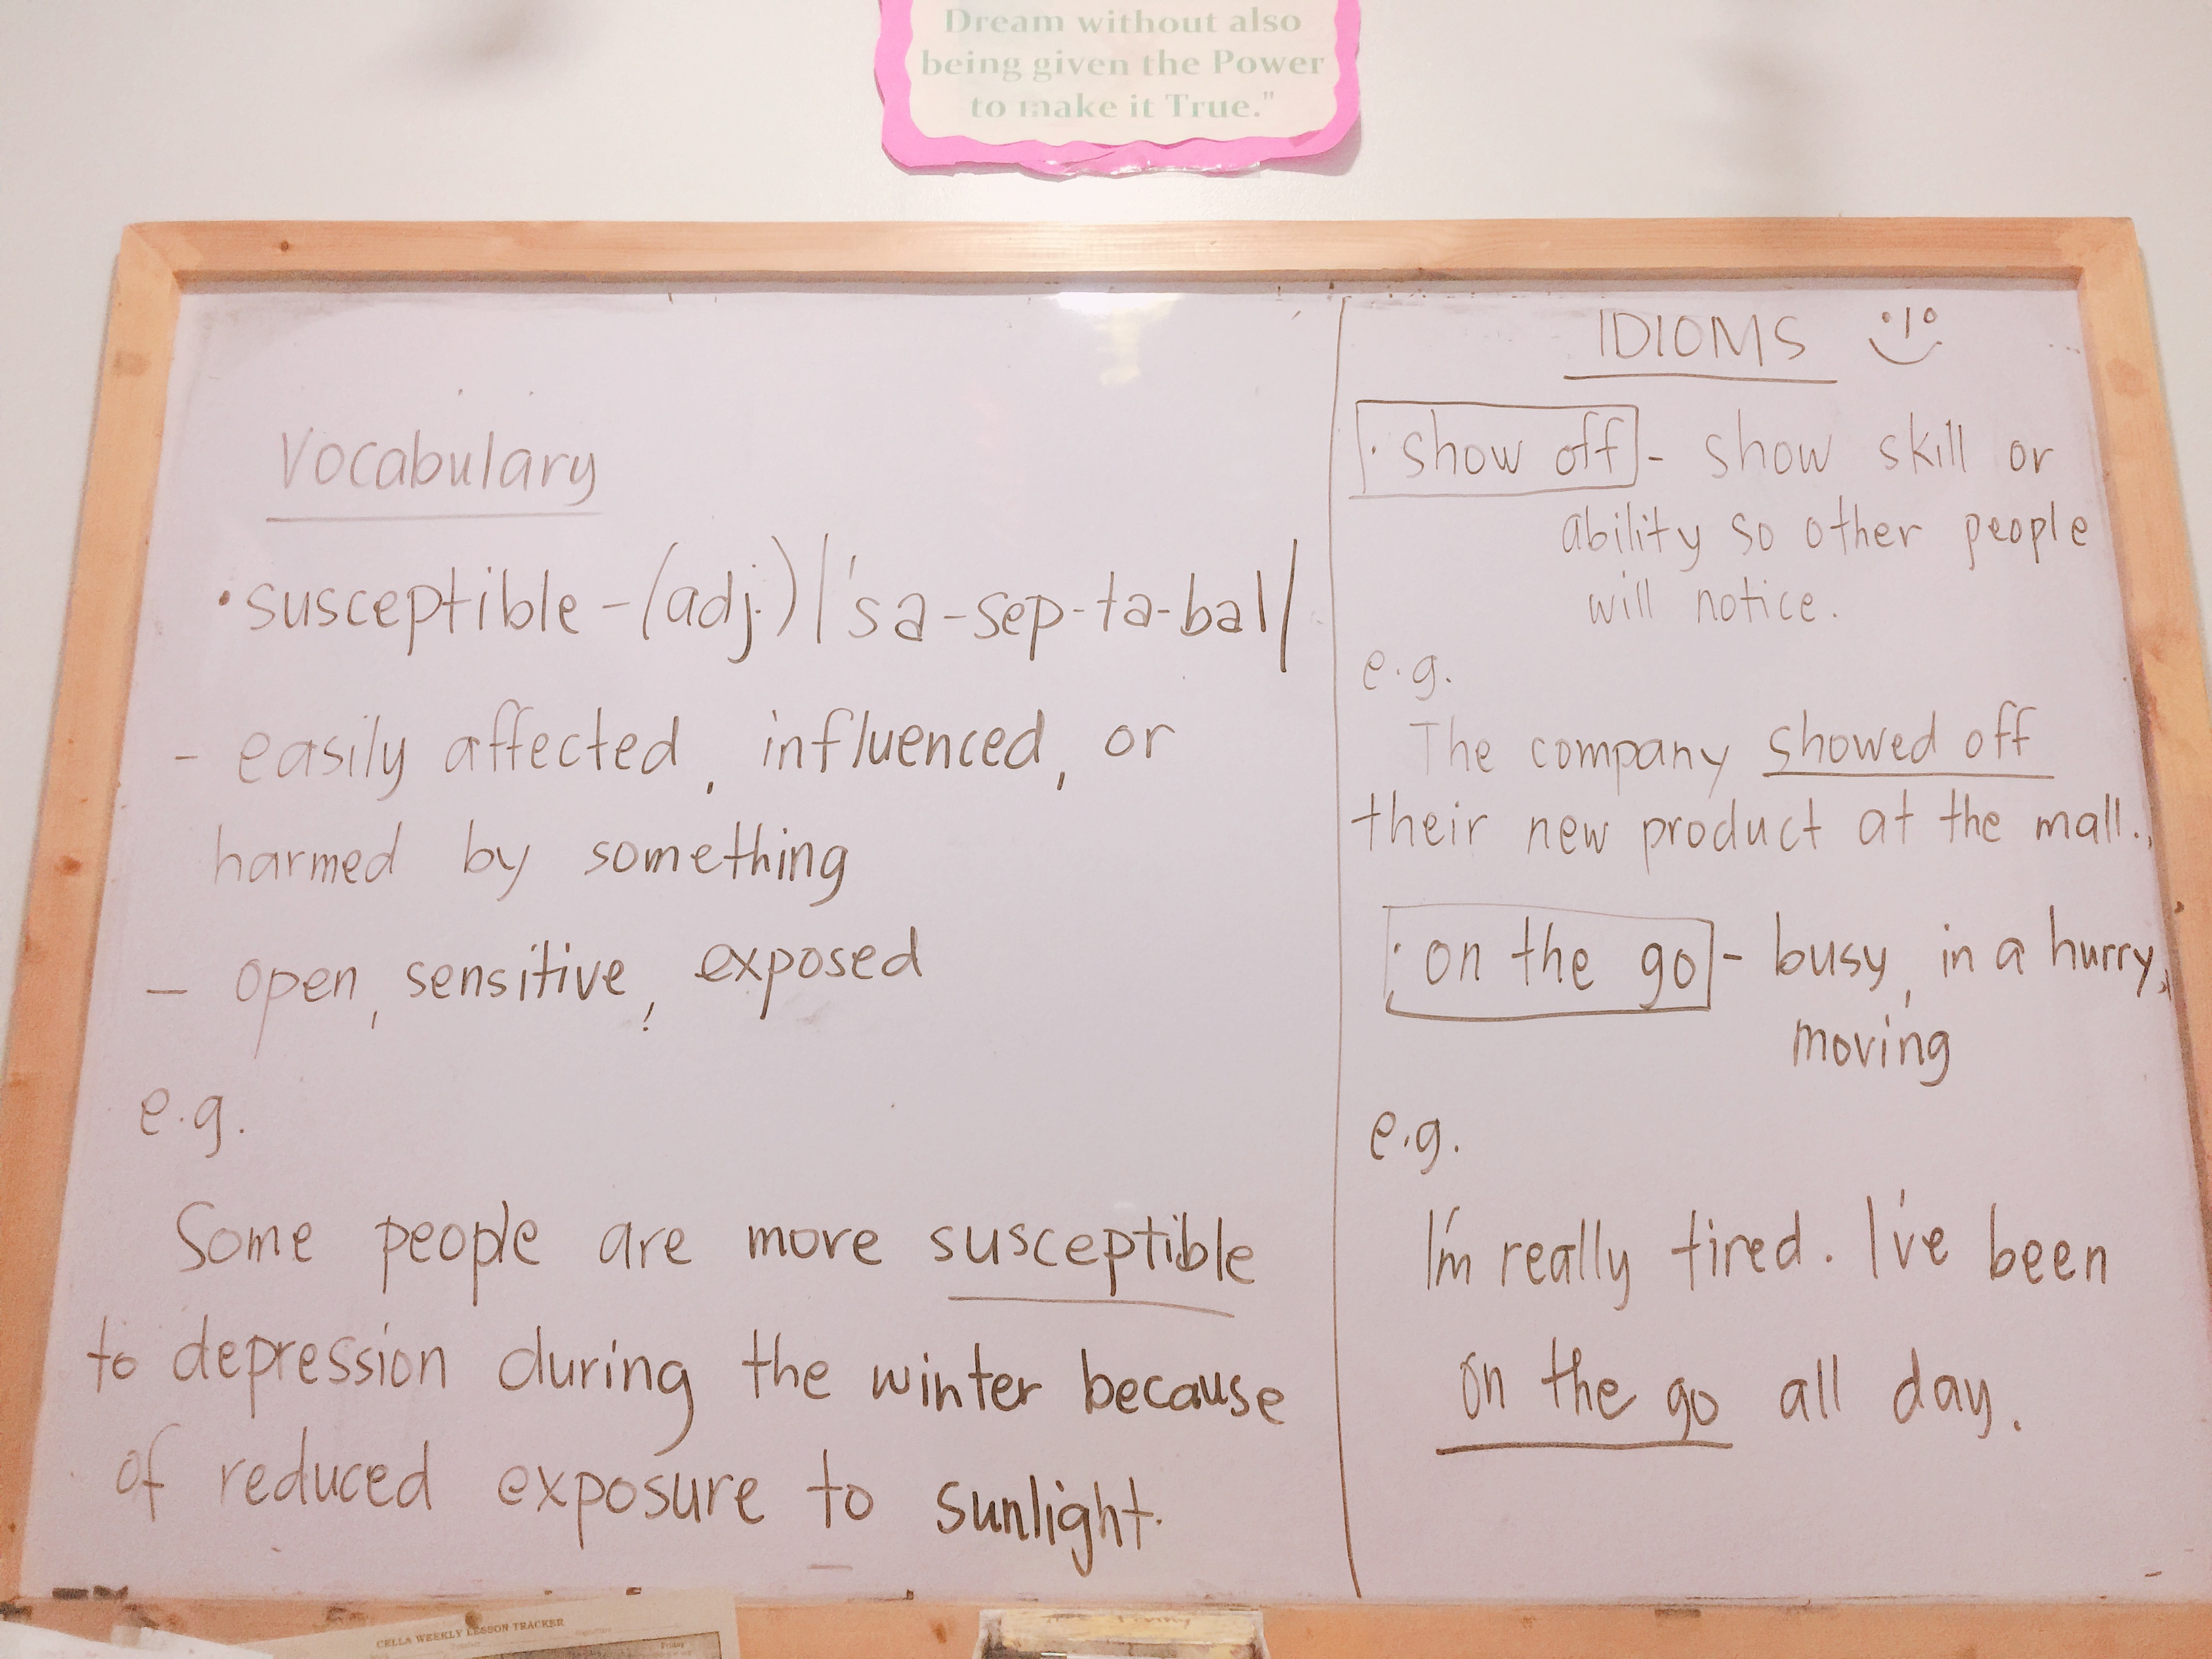 Dream without also
being given the Power
to make it True."
Vocabulary
• susceptible - (adj.) /'sa-sep-ta-bal/
- easily affected, influenced, or
harmed by something
- open, sensitive, exposed
e.g.
Some people are more susceptible
to depression during the winter because
of reduced exposure to sunlight.
IDIOMS
• show off - show skill or
ability so other people
will notice.
e.g.
The company showed off
their new product at the mall.
• on the go - busy, in a hurry,
moving
e.g.
I'm really tired. I've been
on the go all day.
CELLA WEEKLY LESSON TRACKER
Friday